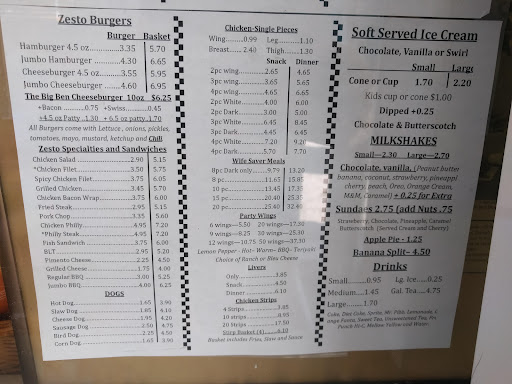 Zesto Burgers
Burger Basket
Hamburger 4.5 oz..........3.35 5.70
Jumbo Hamburger..........4.30 6.65
Cheeseburger 4.5 oz........3.55 5.95
Jumbo Cheeseburger......4.60 6.95
The Big Ben Cheeseburger 10oz $6.25
+Bacon ..........0.75 +Swiss.......0.45
+4.5 oz Patty .1.30 + 6.5 oz patty.1.70
All Burgers come with Lettuce, onions, pickles,
tomatoes, mayo, mustard, ketchup and Chili
Zesto Specialties and Sandwiches
Chicken Salad 2.90 5.15
*Chicken Filet 3.50 5.75
Spicy Chicken Filet 3.75 6.05
Grilled Chicken 3.45 5.70
Chicken Bacon Wrap 3.75 6.00
Fried Steak 2.95 5.15
Pork Chop 3.35 5.60
Chicken Philly 4.95 7.20
*Philly Steak 4.95 7.20
Fish Sandwich 3.75 6.00
BLT 2.95 5.20
Pimento Cheese 2.25 4.50
Grilled Cheese 1.75 4.00
Regular BBQ 3.00 5.25
Jumbo BBQ 4.00 6.25
DOGS
Hot Dog 1.65 3.90
Slaw Dog 1.85 4.10
Cheese Dog 1.95 4.20
Sausage Dog 2.50 4.75
Bird Dog 3.95 6.20
Corn Dog 1.65 3.90
Chicken-Single Pieces
Wing..........0.99 Leg..........1.10
Breast....... 2.40 Thigh.......1.30
Snack Dinner
2pc wing 2.65 4.65
3pc wing 3.65 5.65
4pc wing 4.65 6.65
2pc White 4.00 6.00
2pc Dark 3.00 5.00
3pc White 6.45 8.45
3pc Dark 4.45 6.45
4pc White 7.20 9.20
4pc Dark 5.70 7.70
Wife Saver Meals
8pc Dark only 9.79 13.20
8 pc 11.65 15.85
10 pc 13.45 17.35
15 pc 20.25 25.35
20 pc 25.40 32.40
Party Wings
6 wings---5.50 20 wings---17.30
9 wings---8.25 30 wings---25.30
12 wings--10.75 50 wings--37.30
Lemon Pepper - Hot- Warm- BBQ- Teriyaki
Choice of Ranch or Bleu Cheese
Livers
Only 3.85
Snack 4.50
Dinner 6.10
Chicken Strips
4 Strips 3.85
10 strips 8.95
20 Strips 17.50
Strip Basket (4) 6.10
Basket includes Fries, Slaw and Sauce
Soft Served Ice Cream
Chocolate, Vanilla or Swirl
Small Large
Cone or Cup 1.70 2.20
Kids cup or cone $1.00
Dipped +0.25
Chocolate & Butterscotch
MILKSHAKES
Small---2.30 Large---2.70
Chocolate, vanilla, (Peanut butter
banana, coconut, strawberry, pineappl
cherry, peach, Oreo, Orange Cream,
M&M, Caramel) + 0.25 for Extra
Sundaes 2.75 (add Nuts .75
Strawberry, Chocolate, Pineapple, Caramel
Butterscotch (Served Cream and Cherry)
Apple Pie - 1.25
Banana Split- 4.50
Drinks
Small..........0.95 Lg. Ice......0.25
Medium......1.45 Gal. Tea.....4.75
Large..........1.70
Coke, Diet Coke, Sprite, Mr Pibb, Lemonade,
Fanta, Sweet Tea, Unsweetened Tea,
Punch Hi-C, Mellow Yellow and Water.